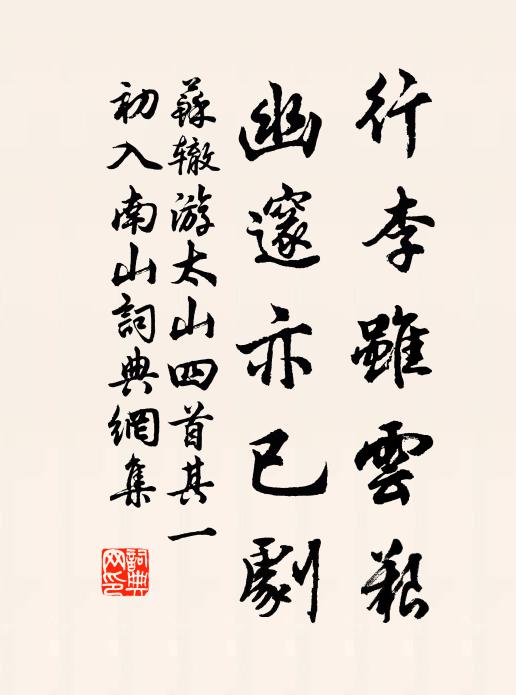 行李雖雲艱
幽邃亦已劇
蘇辙游太山四首其一
初入南山詞典網集
詞典
网印